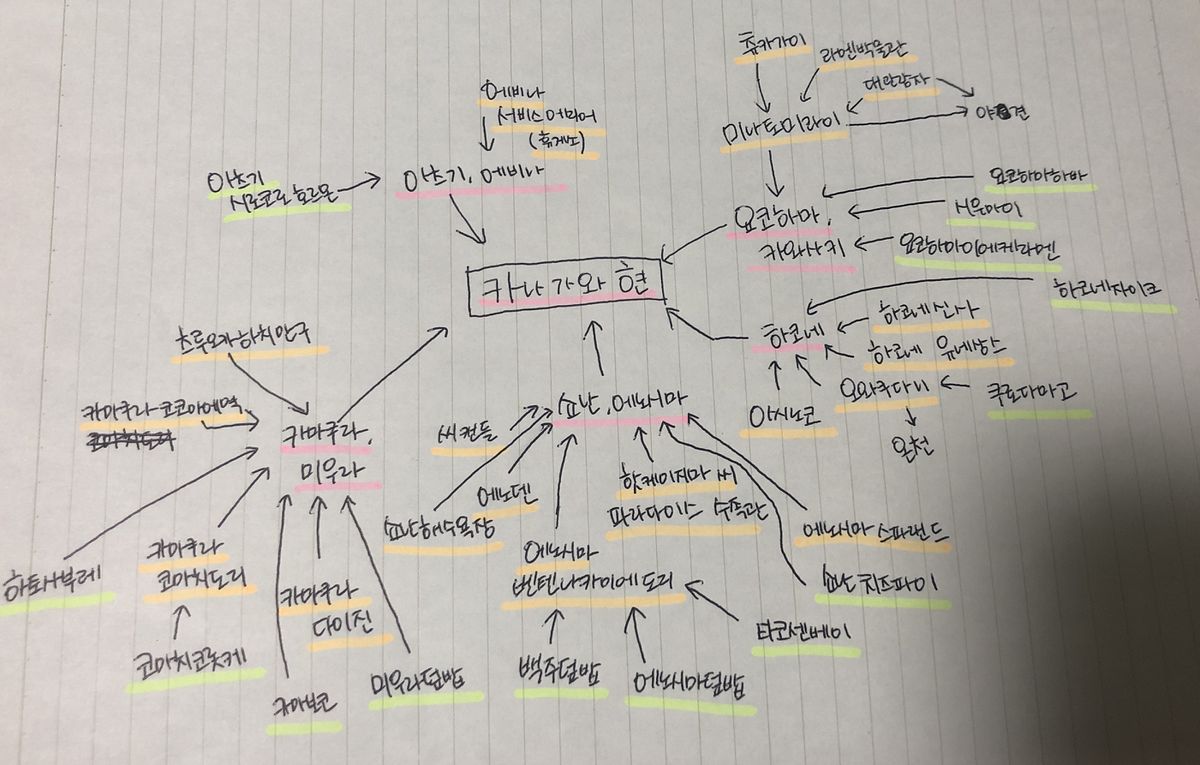 츄카가이
라멘박물관
대관람차
야경
미나토미라이
에비나
서비스에리어
(휴게소)
아츠기
시로코로 호르몬
아츠기, 에비나
요코하마,
카와사키
요코하마하바
시우마이
요코하마이에케라멘
카나가와 현
하코네자이크
하코네
하코네신사
하코네 유네상스
오와쿠다니
쿠로다마고
아시노코
온천
츠루오카하치만구
카마쿠라코코마에역
카마쿠라,
미우라
쇼난, 에노시마
씨캔들
에노덴
쇼난해수욕장
핫케이지마 씨
파라다이스 수족관
에노시마 스파랜드
쇼난치즈파이
하토사부레
카마쿠라
코마치도리
코마치코롯케
카마쿠라
다이진
카마보코
미우라덮밥
에노시마
벤텐나카미세도리
타코센베이
뱅어덮밥
에노시마덮밥